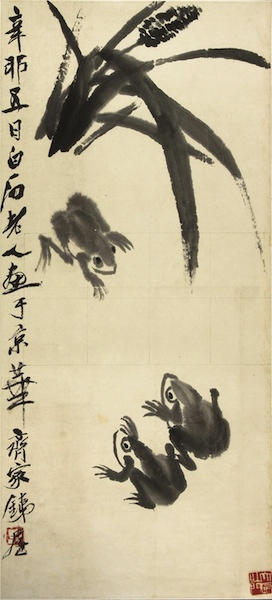 辛卯五日白石老人畫于京華齊家鐵屋